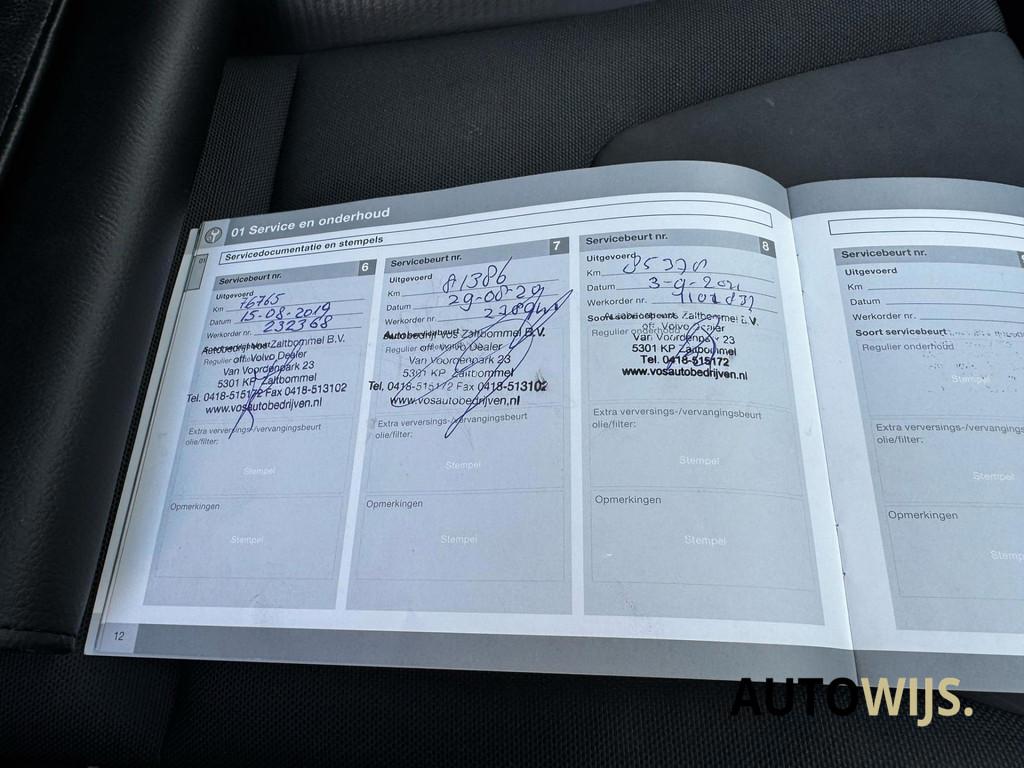 01 Service en onderhoud
Servicedocumentatie en stempels
01
Servicebeurt nr. 6
Uitgevoerd
Km 76765
Datum 15-08-2019
Werkorder nr. 232368
Autobedrijf Vos Zaltbommel B.V.
off. Volvo Dealer
Van Voordenpark 23
5301 KP Zaltbommel
Tel. 0418-515172 Fax 0418-513102
www.vosautobedrijven.nl
Extra verversings-/vervangingsbeurt
olie/filter:
Stempel
Opmerkingen
Stempel
Servicebeurt nr. 7
Uitgevoerd
Km 81386
Datum 29-08-20
Werkorder nr.
Autobedrijf Vos Zaltbommel B.V.
Regulier off. Volvo Dealer
Van Voordenpark 23
5301 KP Zaltbommel
Tel. 0418-515172 Fax 0418-513102
www.vosautobedrijven.nl
Extra verversings-/vervangingsbeurt
olie/filter:
Stempel
Opmerkingen
Stempel
Servicebeurt nr. 8
Uitgevoerd
Km 85370
Datum 3-9-2021
Werkorder nr.
Zaltbommel B.V.
Regulier onderhoud off. Volvo Dealer
Van Voordenpark 23
5301 KP Zaltbommel
Tel. 0418-515172
www.vosautobedrijven.nl
Extra verversings-/vervangingsbeurt
olie/filter:
Stempel
Opmerkingen
Stempel
Servicebeurt nr.
Uitgevoerd
Km
Datum
Werkorder nr.
Soort servicebeurt
Regulier onderhoud
Stempel
Extra verversings-/vervangings
olie/filter:
Stempel
Opmerkingen
Stemp
12
AUTOWIJS.